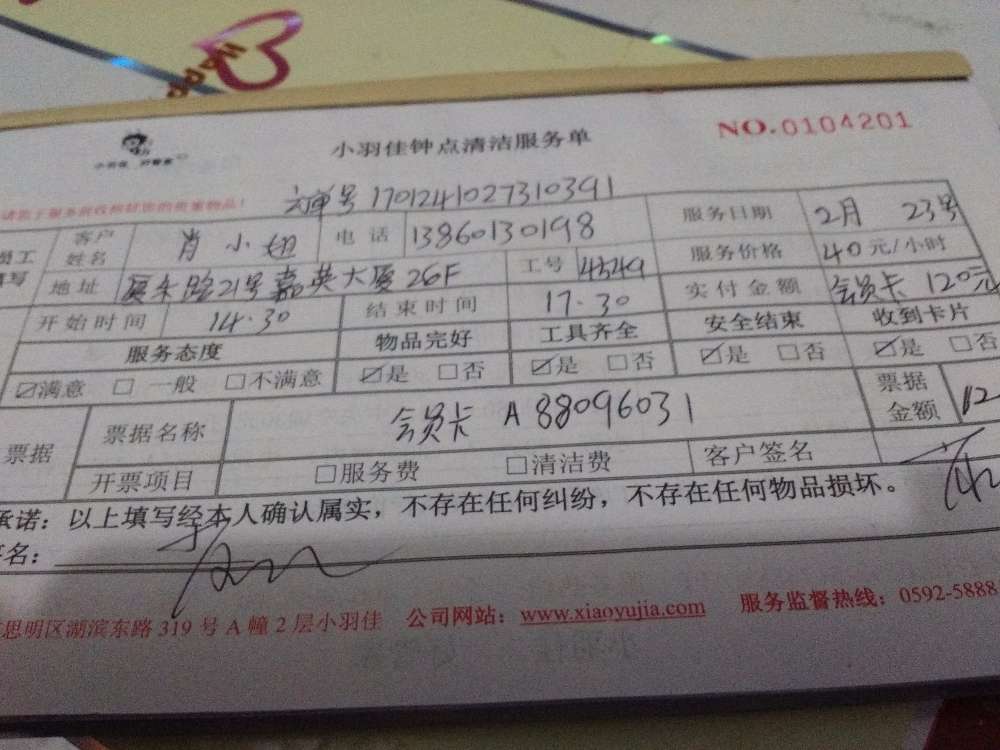 Happy
小羽佳
小羽佳钟点清洁服务单
NO.0104201
单号 1701241027310391
客户姓名 肖小姐 电话 13860130198 服务日期 2月 23号
地址 路21号嘉英大厦26F 工号 4549 服务价格 40元/小时
开始时间 14.30 结束时间 17.30 实付金额 会员卡 120元
服务态度 物品完好 工具齐全 安全结束 收到卡片
☑满意 □一般 □不满意 ☑是 □否 ☑是 □否 ☑是 □否 ☑是 □否
票据 票据名称 会员卡 A88096031 票据金额 12
开票项目 □服务费 □清洁费 客户签名
承诺：以上填写经本人确认属实，不存在任何纠纷，不存在任何物品损坏。
名：
思明区湖滨东路 319 号 A 幢 2 层小羽佳 公司网站：www.xiaoyujia.com 服务监督热线：0592-5888